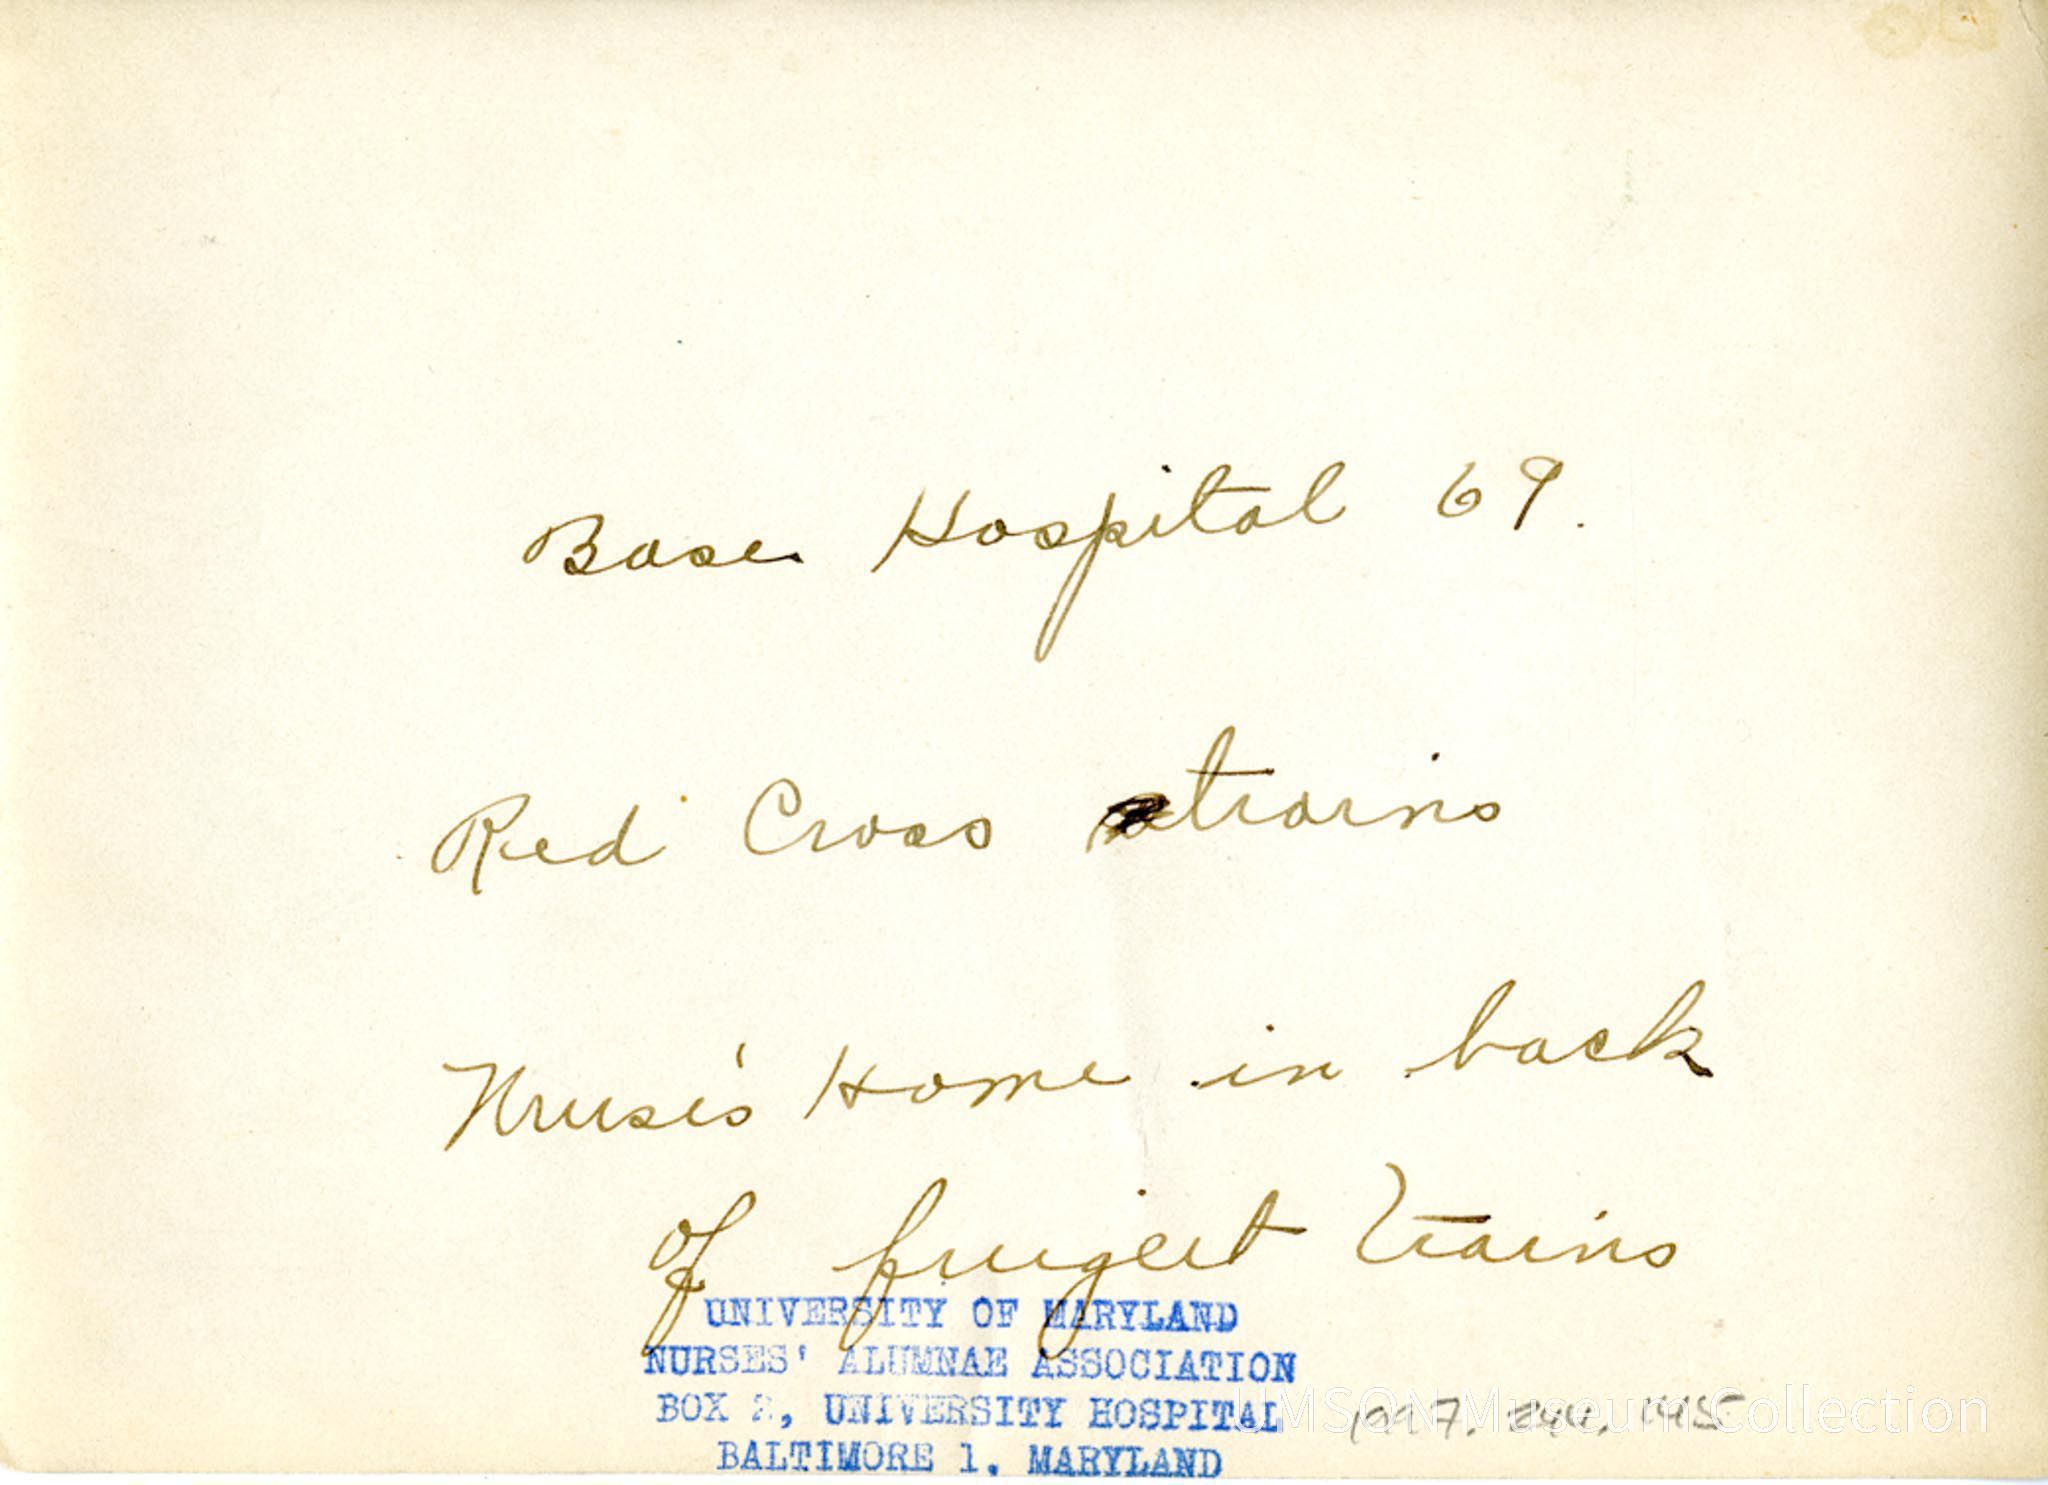 Base Hospital 69.
Red Cross trains
Nruse's Home in back
of freigert trains
UNIVERSITY OF MARYLAND
NURSES' ALUMNAE ASSOCIATION
BOX 2, UNIVERSITY HOSPITAL
BALTIMORE 1, MARYLAND
1997.244.145
UMSON Museum Collection